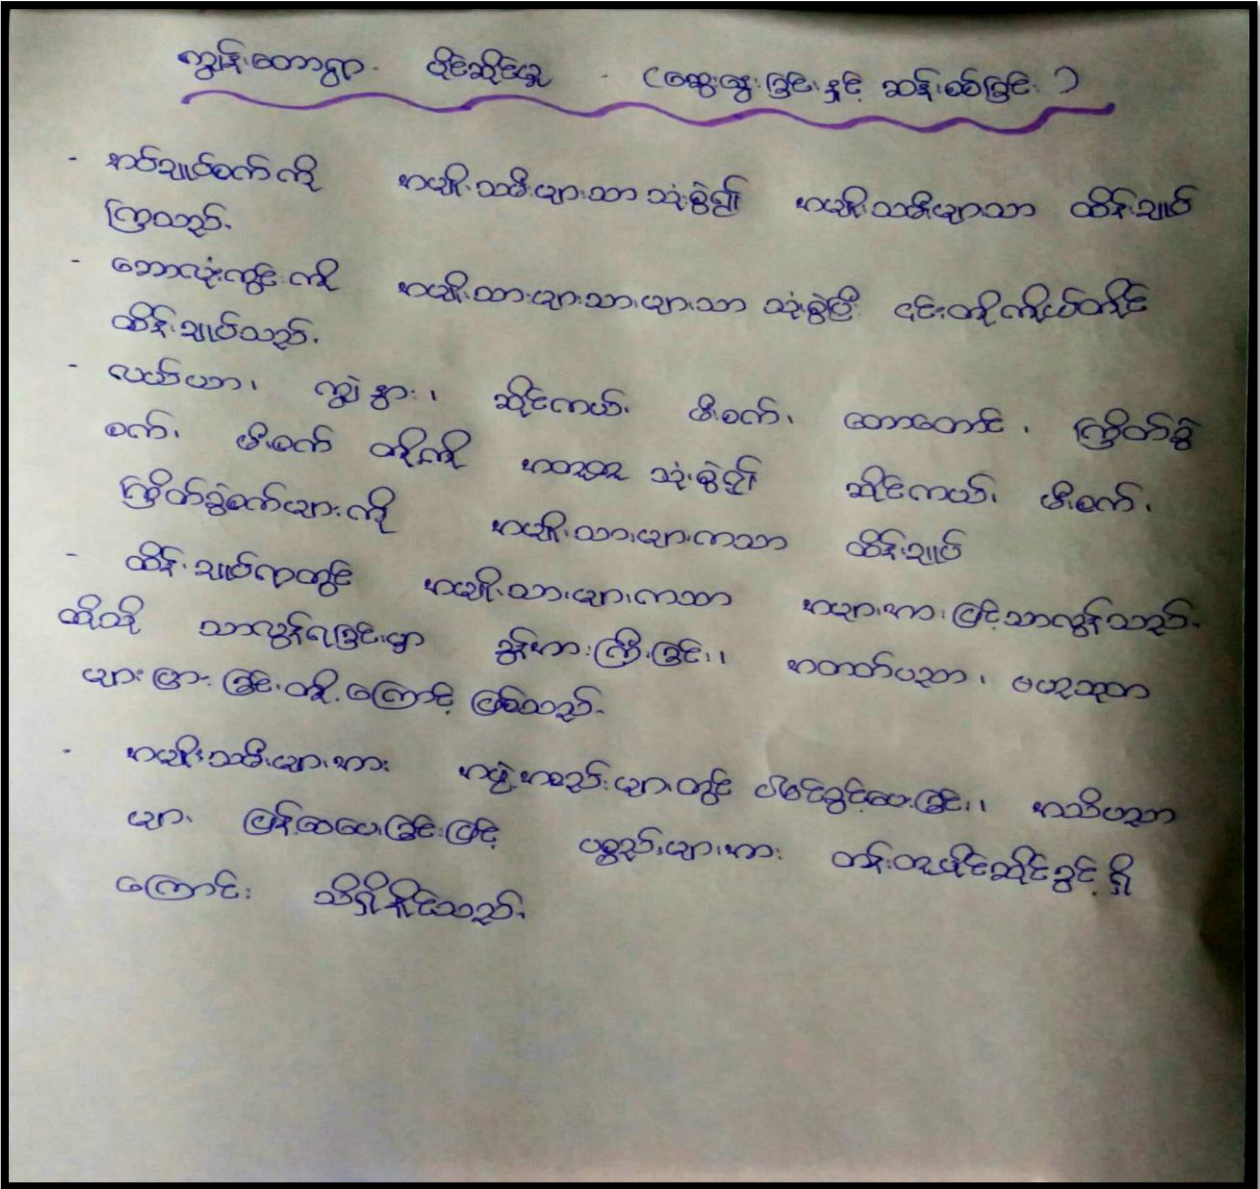 ကျွန်းတောရွာ ပိုင်ဆိုင်မှု (ဆွေးနွေးခြင်းနှင့် ဆန်းစစ်ခြင်း)
- အပ်ချုပ်စက်ကို အမျိုးသမီးများသာ သုံးစွဲ၍ အမျိုးသမီးများသာ ထိန်းချုပ်
ကြသည်.
- ဘောလုံးကွင်းကို အမျိုးသားများသားများသာ သုံးစွဲပြီး ၎င်းတို့ကိုယ်တိုင်
ထိန်းချုပ်သည်.
- လယ်ယာ၊ ကျွဲနွား၊ ဆိုင်ကယ်၊ မီးစက်၊ တောတောင်၊ ကြိတ်ခွဲ
စက်၊ မီးစက် တို့ကို အတူတူ သုံးစွဲ၍ ဆိုင်ကယ်၊ မီးစက်၊
ကြိတ်ခွဲစက်များကို အမျိုးသားများကသာ ထိန်းချုပ်
- ထိန်းချုပ်ရာတွင် အမျိုးသားများကသာ အများအားဖြင့်သာလွန်သည်.
ထိုသို့ သာလွန်ရခြင်းမှာ ခွန်အားကြီးခြင်း၊ အတတ်ပညာ၊ ဗဟုသုတ
များပြားခြင်းတို့ကြောင့် ဖြစ်သည်.
- အမျိုးသမီးများအား အဖွဲ့အစည်းများတွင် ပါဝင်ခွင့်ပေးခြင်း၊ အသိပညာ
များ ဖြန့်ဝေပေးခြင်းဖြင့် ပစ္စည်းများအား တန်းတူပိုင်ဆိုင်ခွင့် ရှိ
ကြောင်း သိရှိနိုင်သည်.